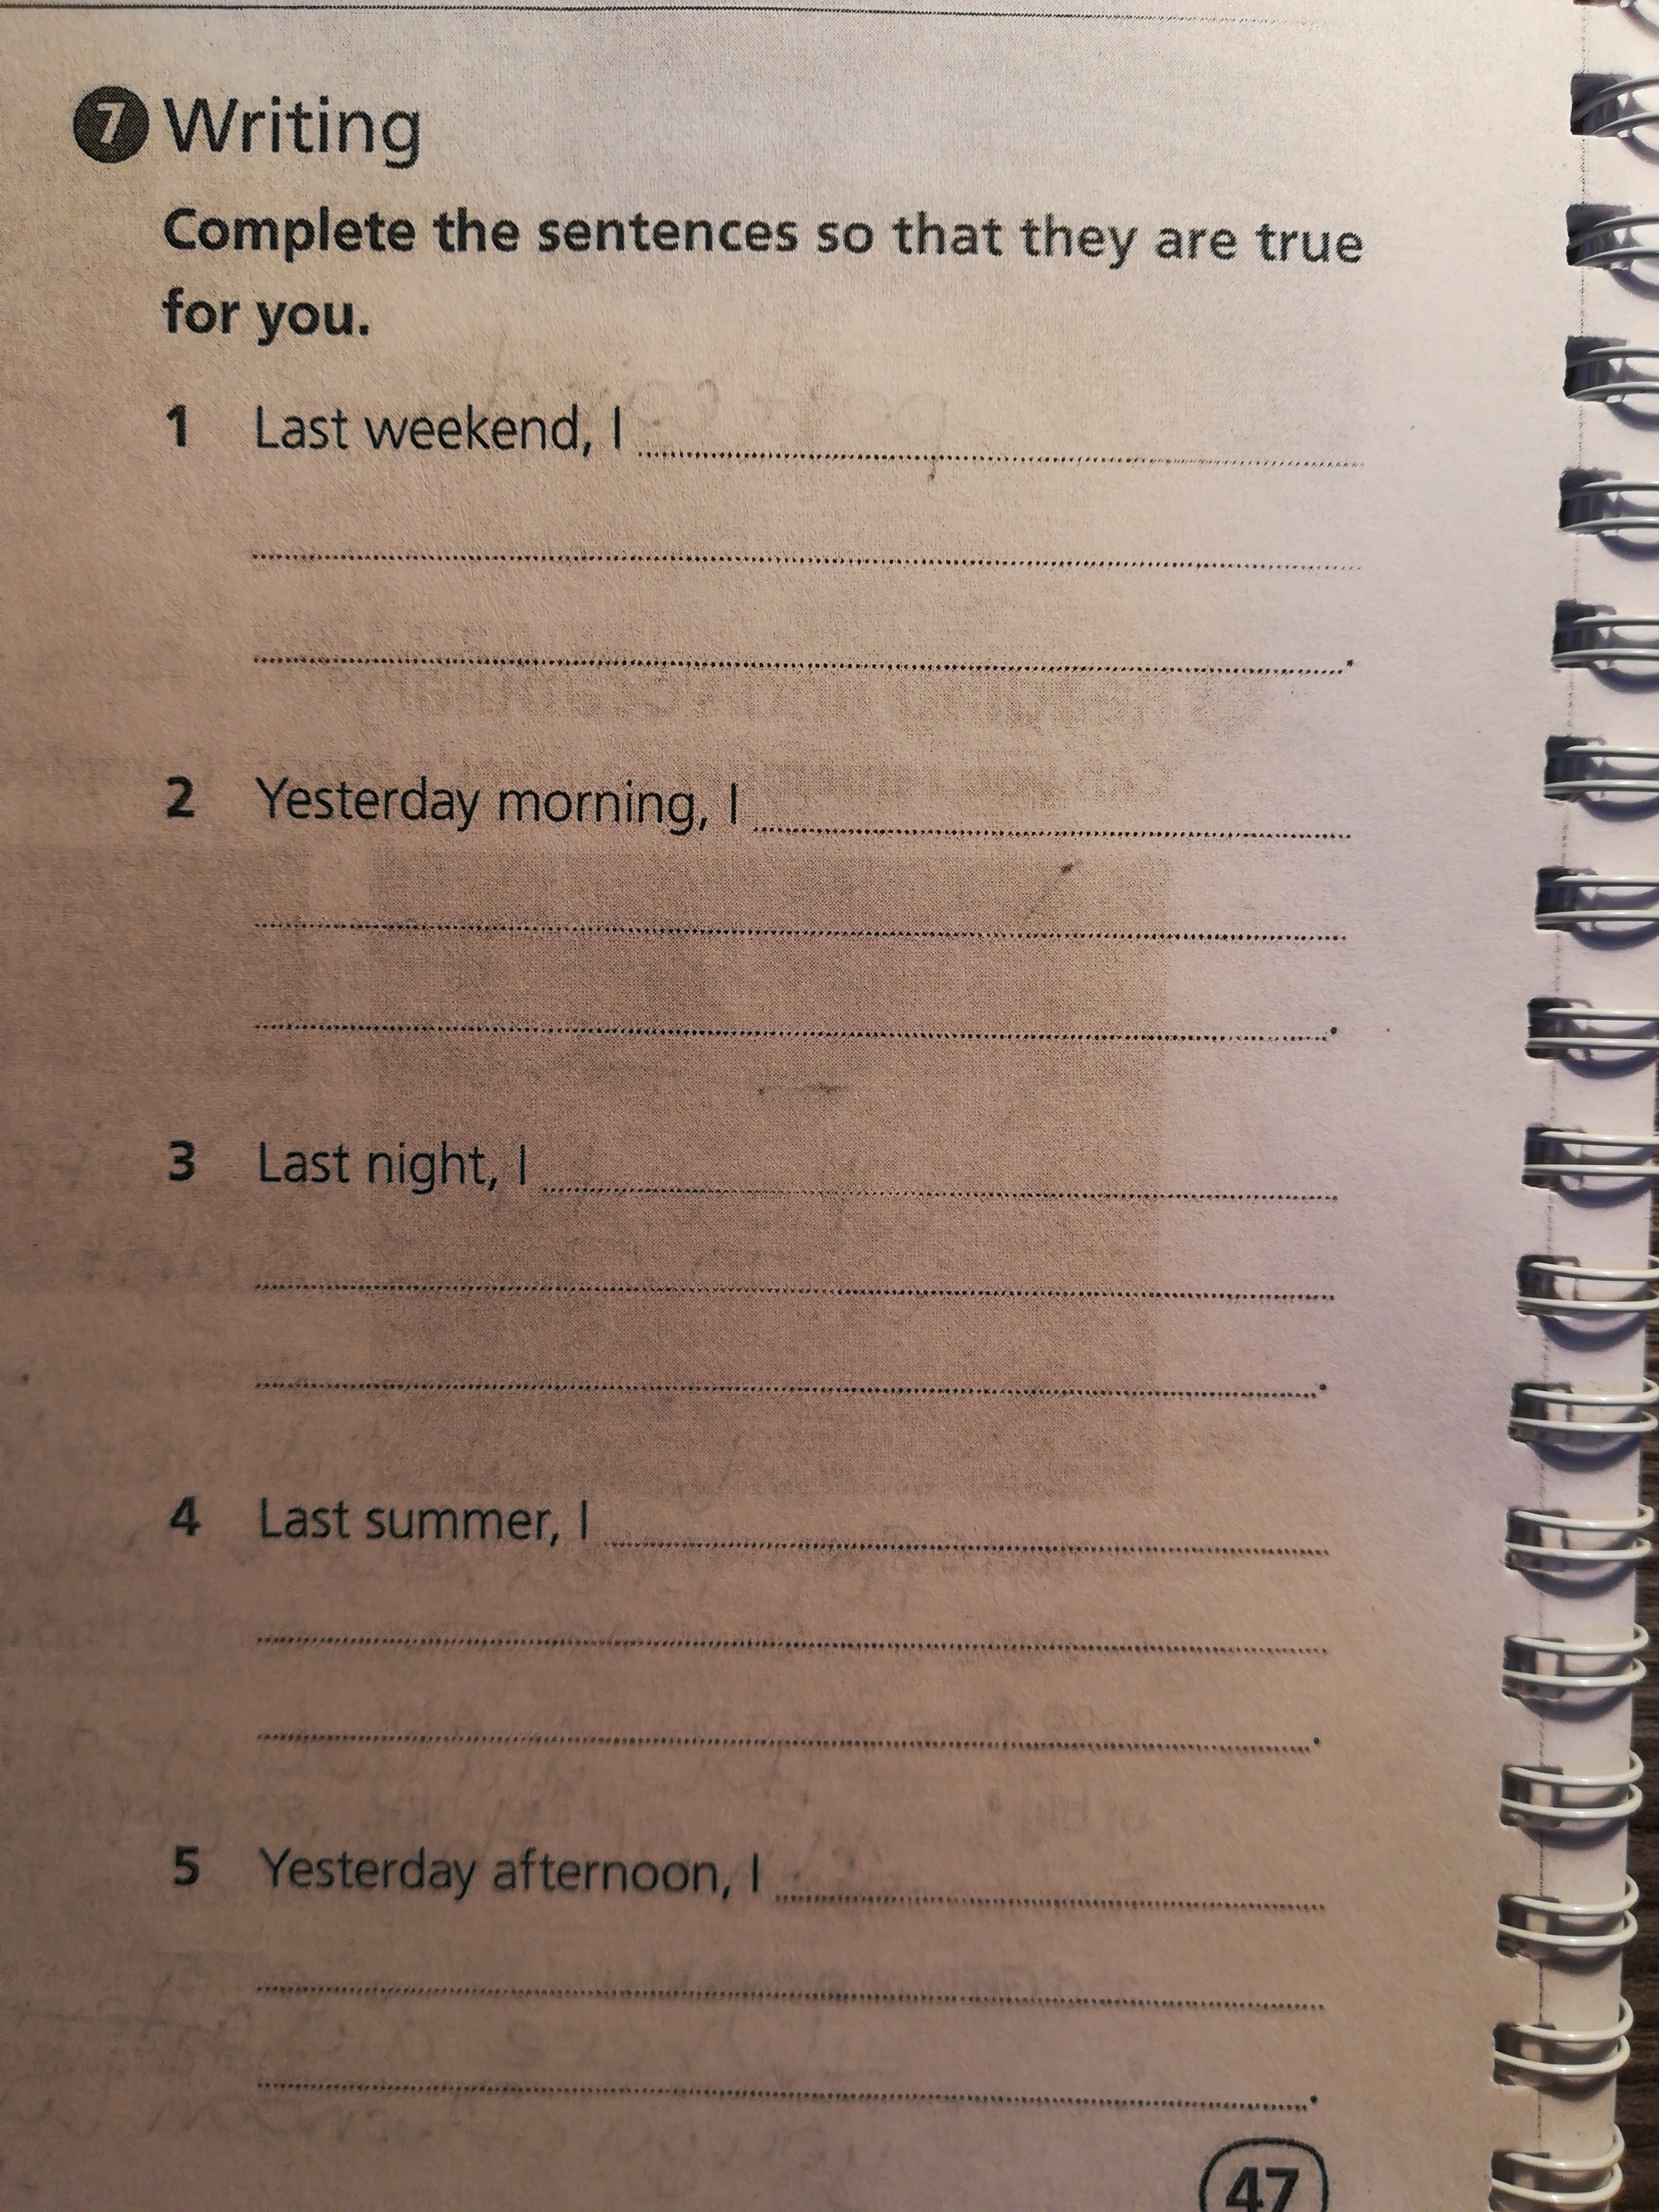 7 Writing
Complete the sentences so that they are true
for you.
1 Last weekend, I
.
2 Yesterday morning, I
.
3 Last night, I
.
4 Last summer, I
.
5 Yesterday afternoon, I
.
47